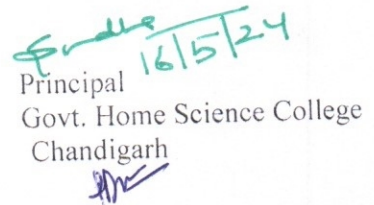 16/5/24
Principal
Govt. Home Science College
Chandigarh